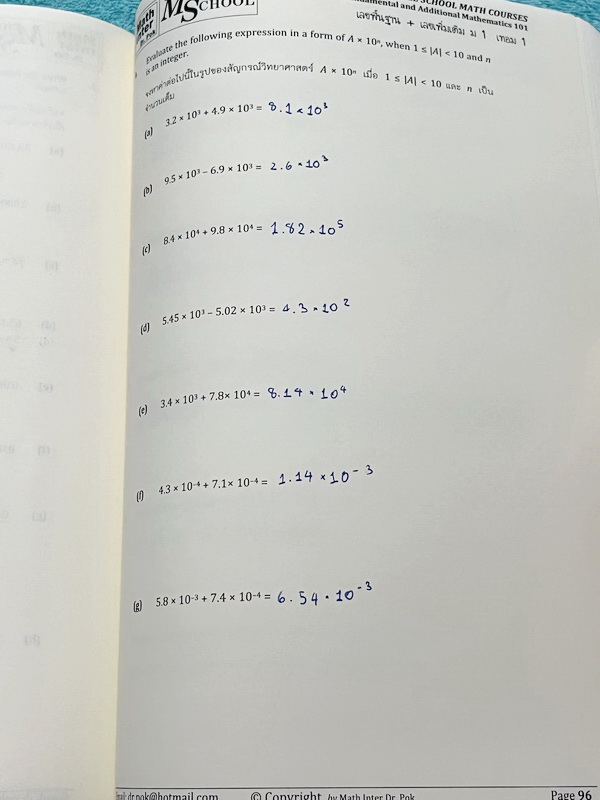 Math
Inter
Dr. Pok
MSCHOOL
SCHOOL MATH COURSES
damental and Additional Mathematics 101
เลขพื้นฐาน + เลขเพิ่มเติม ม 1 เทอม 1
Evaluate the following expression in a form of A × 10ⁿ, when 1 ≤ |A| < 10 and n
is an integer.
จงหาค่าต่อไปนี้ในรูปของสัญกรณ์วิทยาศาสตร์ A × 10ⁿ เมื่อ 1 ≤ |A| < 10 และ n เป็น
จำนวนเต็ม
(a) 3.2 × 10³ + 4.9 × 10³ = 8.1 × 10³
(b) 9.5 × 10³ – 6.9 × 10³ = 2.6 × 10³
(c) 8.4 × 10⁴ + 9.8 × 10⁴ = 1.82 × 10⁵
(d) 5.45 × 10³ – 5.02 × 10³ = 4.3 × 10²
(e) 3.4 × 10³ + 7.8× 10⁴ = 8.14 × 10⁴
(f) 4.3 × 10⁻⁴ + 7.1× 10⁻⁴ = 1.14 × 10⁻³
(g) 5.8 × 10⁻³ + 7.4 × 10⁻⁴ = 6.54 × 10⁻³
dr.pok@hotmail.com © Copyright by Math Inter Dr. Pok Page 96